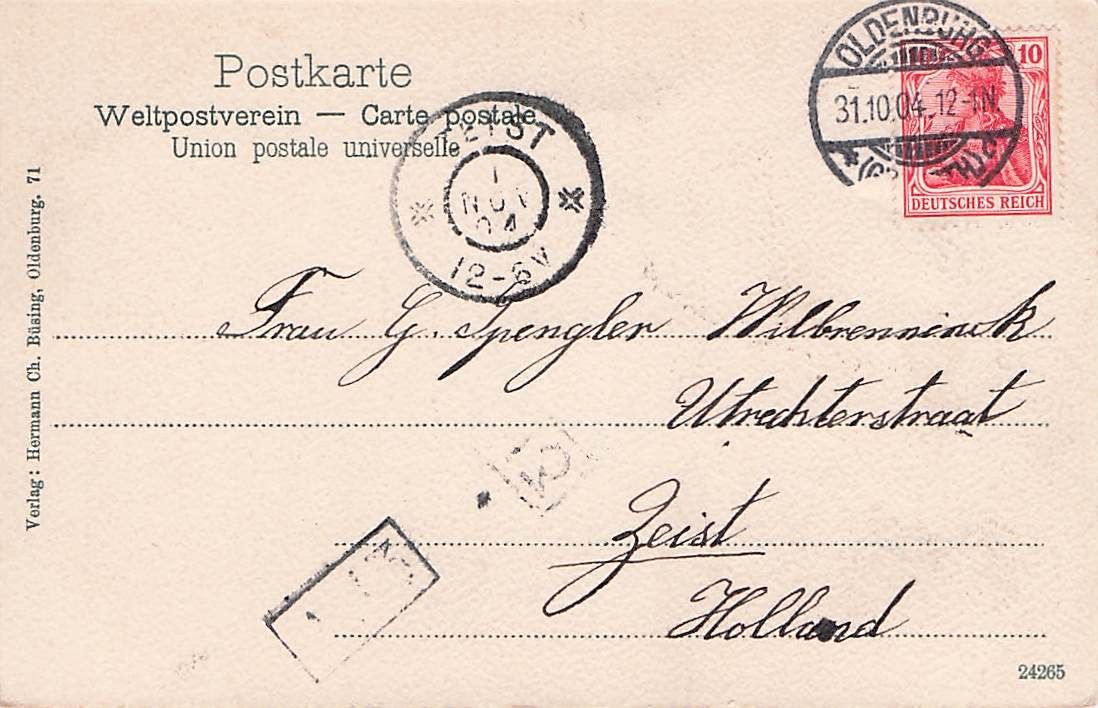 Postkarte
Weltpostverein — Carte postale
Union postale universelle
OLDENBURG
31.10.04. 12-1N.
10
DEUTSCHES REICH
ZEIST
1
NOV
04
12-6V
Frau G. Spengler Wilbrenninck
Utrechterstraat
Zeist
Holland
Verlag: Hermann Ch. Büsing, Oldenburg. 71
24265